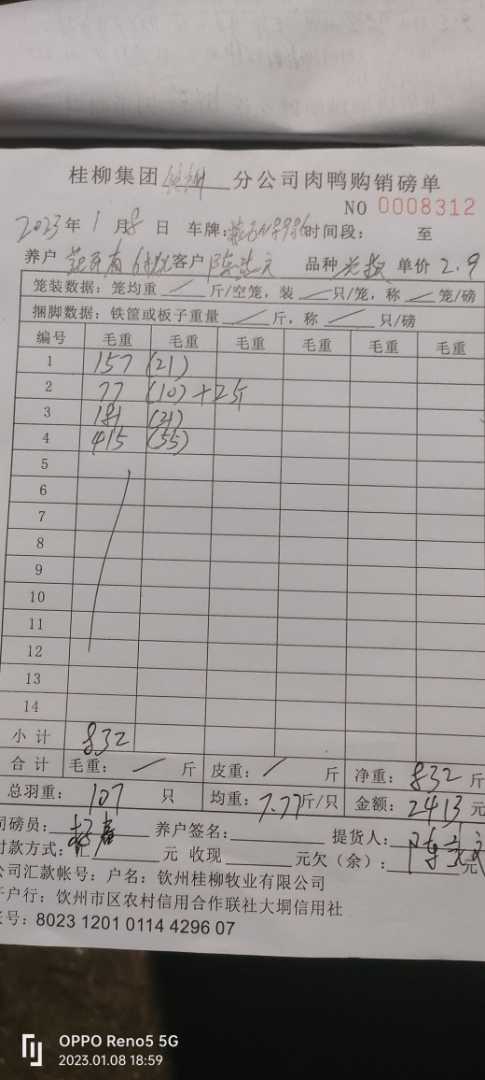 桂柳集团 钦州 分公司肉鸭购销磅单
NO 0008312
2023年 1 月 8 日 车牌: 时间段: 至
养户 客户 品种 单价 2.9
笼装数据: 笼均重 / 斤/空笼, 装 / 只/笼, 称 / 笼/磅
捆脚数据: 铁筐或板子重量 / 斤, 称 / 只/磅
编号 毛重 毛重 毛重 毛重 毛重 毛重
1 157 (21)
2 77 (10) +2斤
3 181 (21)
4 415 (55)
5
6
7
8
9
10
11
12
13
14
小计 832
合计 毛重: / 斤 皮重: / 斤 净重: 832 斤
总羽重: 107 只 均重: 7.77 斤/只 金额: 2413 元
司磅员: 养户签名: 提货人:
付款方式: 汇 元 收现 元欠(余): 元
公司汇款帐号: 户名: 钦州桂柳牧业有限公司
开户行: 钦州市区农村信用合作联社大垌信用社
帐号: 8023 1201 0114 4296 07
OPPO Reno5 5G
2023.01.08 18:59